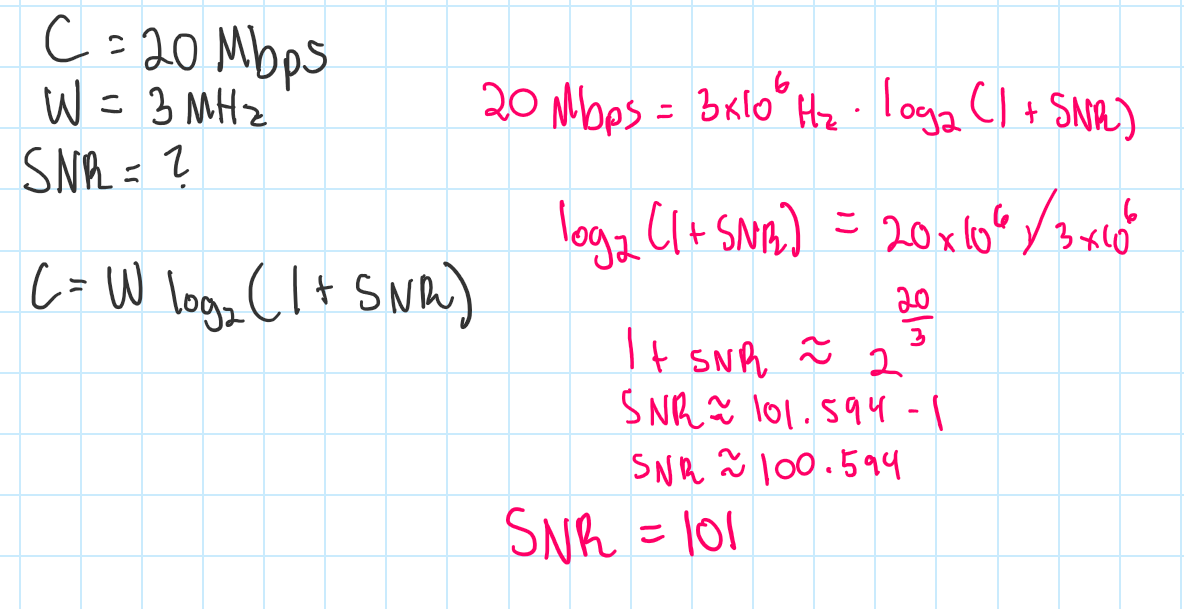 C = 20 Mbps
W = 3 MHz
SNR = ?
C = W log₂(1 + SNR)
20 Mbps = 3x10⁶ Hz · log₂(1 + SNR)
log₂(1 + SNR) = 20x10⁶ / 3x10⁶
1 + SNR ≈ 2^(20/3)
SNR ≈ 101.594 - 1
SNR ≈ 100.594
SNR = 101